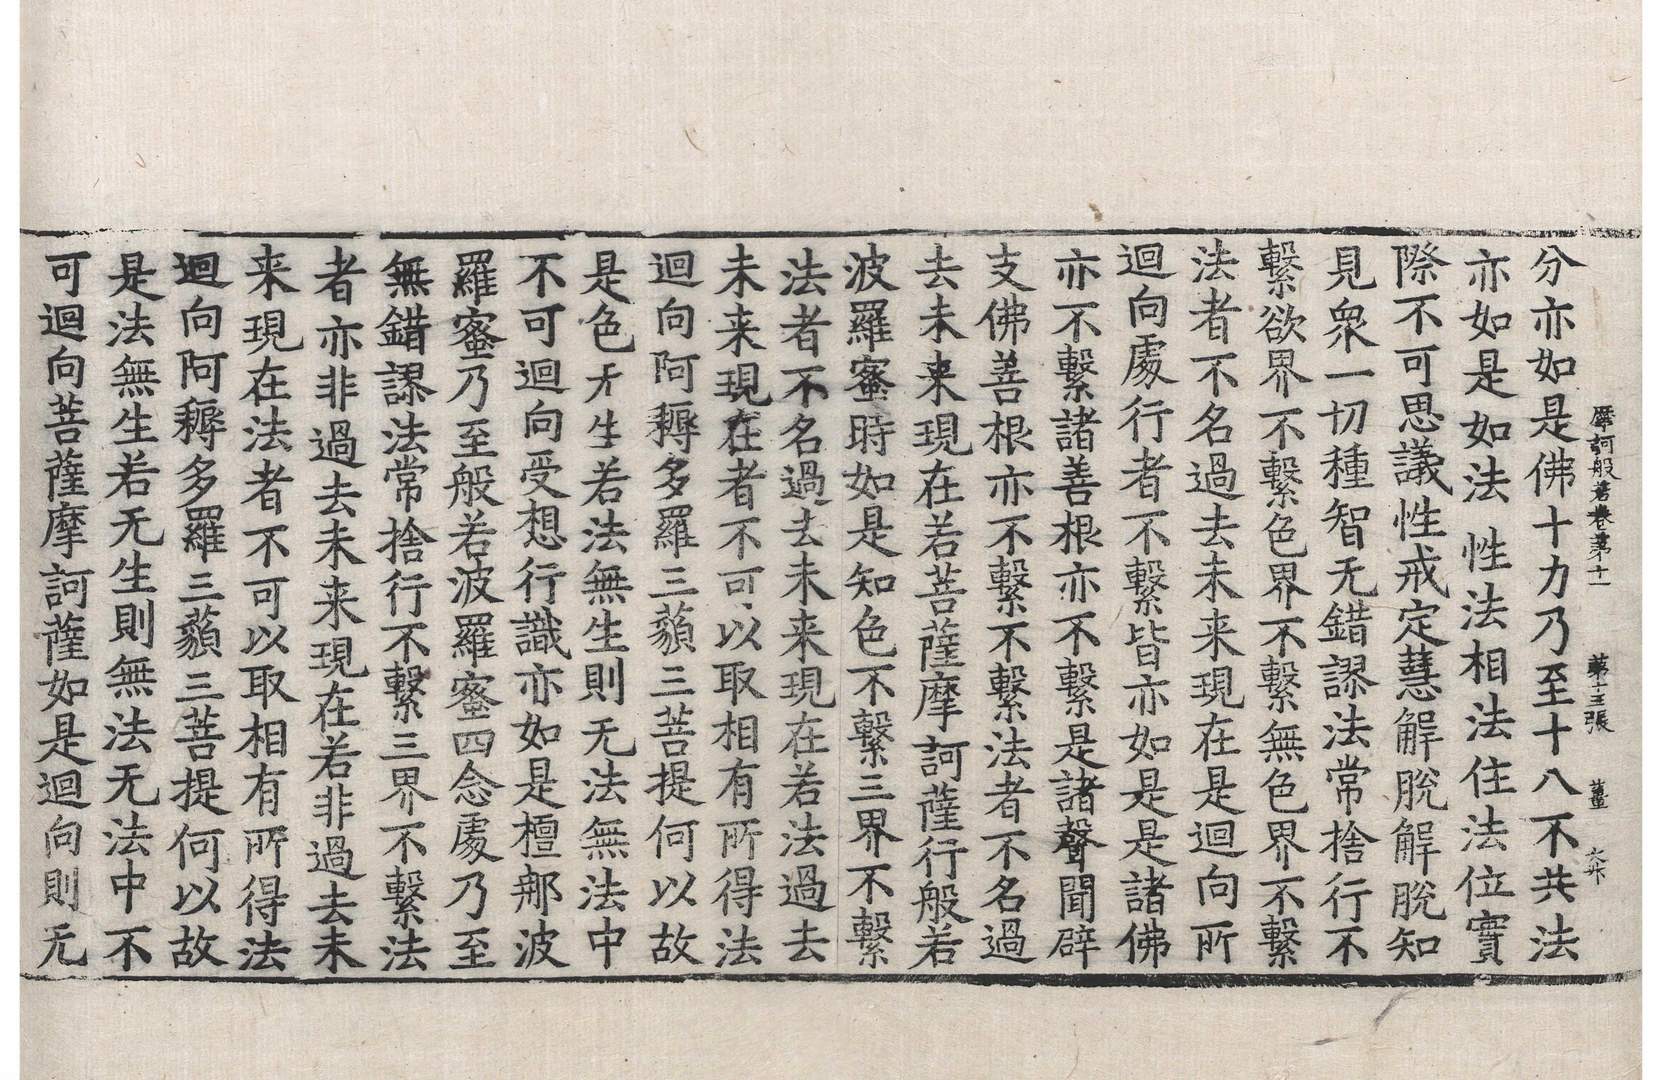 摩訶般若卷第十一　第十三張　薑
分亦如是佛十力乃至十八不共法
亦如是如法性法相法住法位實
際不可思議性戒定慧解脫解脫知
見衆一切種智无錯謬法常捨行不
繫欲界不繫色界不繫無色界不繫
法者不名過去未来現在是迴向所
迴向處行者不繫皆亦如是是諸佛
亦不繫諸善根亦不繫是諸聲聞辟
支佛善根亦不繫不繫法者不名過
去未来現在若菩薩摩訶薩行般若
波羅蜜時如是知色不繫三界不繫
法者不名過去未来現在若法過去
未来現在者不可以取相有所得法
迴向阿耨多羅三藐三菩提何以故
是色无生若法無生則无法無法中
不可迴向受想行識亦如是檀那波
羅蜜乃至般若波羅蜜四念處乃至
無錯謬法常捨行不繫三界不繫法
者亦非過去未来現在若非過去未
来現在法者不可以取相有所得法
迴向阿耨多羅三藐三菩提何以故
是法無生若无生則無法无法中不
可迴向菩薩摩訶薩如是迴向則无